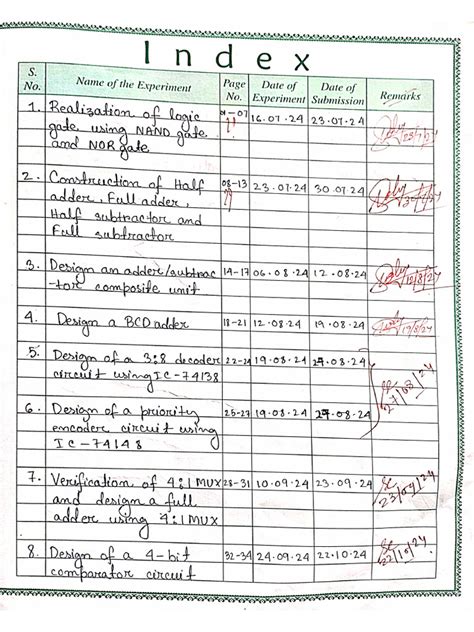 Index
S. No. Name of the Experiment Page No. Date of Experiment Date of Submission Remarks
1. Realization of logic 01-07 16.07.24 23.07.24
gate using NAND gate 23/7/24
and NOR gate
2. Construction of Half 08-13 23.07.24 30.07.24
adder, Full adder, 30/7/24
Half subtractor and
Full subtractor
3. Design an adder/subtrac 14-17 06.08.24 12.08.24
-tor composite unit 12/8/24
4. Design a BCD adder 18-21 12.08.24 19.08.24 19/8/24
5. Design of a 3:8 decoder 22-24 19.08.24 27.08.24
circuit using IC-74138 27/08/24
6. Design of a priority 25-27 19.08.24 27.08.24
encoder circuit using
IC-74148
7. Verification of 4:1 MUX 28-31 10.09.24 23.09.24
and design a full 23/09/24
adder using 4:1 MUX
8. Design of a 4-bit 32-34 24.09.24 22.10.24
comparator circuit 22/10/24